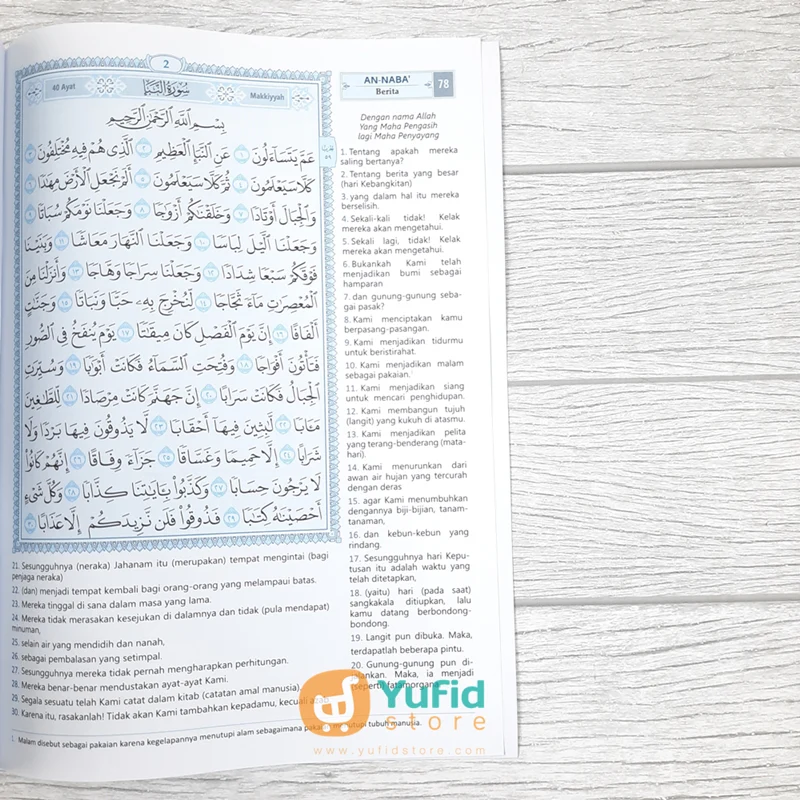 2
40 Ayat
سُورَةُ النَّبَإِ
Makkiyyah
بِسْمِ اللَّهِ الرَّحْمَٰنِ الرَّحِيمِ
عَمَّ يَتَسَاءَلُونَ ١ عَنِ النَّبَإِ الْعَظِيمِ ٢ الَّذِي هُمْ فِيهِ مُخْتَلِفُونَ ٣
كَلَّا سَيَعْلَمُونَ ٤ ثُمَّ كَلَّا سَيَعْلَمُونَ ٥ أَلَمْ نَجْعَلِ الْأَرْضَ مِهَٰدًا ٦
وَالْجِبَالَ أَوْتَادًا ٧ وَخَلَقْنَٰكُمْ أَزْوَٰجًا ٨ وَجَعَلْنَا نَوْمَكُمْ سُبَاتًا ٩
وَجَعَلْنَا الَّيْلَ لِبَاسًا ١٠ وَجَعَلْنَا النَّهَارَ مَعَاشًا ١١ وَبَنَيْنَا
فَوْقَكُمْ سَبْعًا شِدَادًا ١٢ وَجَعَلْنَا سِرَاجًا وَهَّاجًا ١٣ وَأَنزَلْنَا مِنَ
الْمُعْصِرَٰتِ مَاءً ثَجَّاجًا ١٤ لِّنُخْرِجَ بِهِۦ حَبًّا وَنَبَاتًا ١٥ وَجَنَّٰتٍ
أَلْفَافًا ١٦ إِنَّ يَوْمَ الْفَصْلِ كَانَ مِيقَٰتًا ١٧ يَوْمَ يُنفَخُ فِي الصُّورِ
فَتَأْتُونَ أَفْوَاجًا ١٨ وَفُتِحَتِ السَّمَاءُ فَكَانَتْ أَبْوَٰبًا ١٩ وَسُيِّرَتِ
الْجِبَالُ فَكَانَتْ سَرَابًا ٢٠ إِنَّ جَهَنَّمَ كَانَتْ مِرْصَادًا ٢١ لِّلطَّٰغِينَ
مَـَٔابًا ٢٢ لَّٰبِثِينَ فِيهَا أَحْقَابًا ٢٣ لَّا يَذُوقُونَ فِيهَا بَرْدًا وَلَا
شَرَابًا ٢٤ إِلَّا حَمِيمًا وَغَسَّاقًا ٢٥ جَزَاءً وِفَاقًا ٢٦ إِنَّهُمْ كَانُوا
لَا يَرْجُونَ حِسَابًا ٢٧ وَكَذَّبُوا بِـَٔايَٰتِنَا كِذَّابًا ٢٨ وَكُلَّ شَيْءٍ
أَحْصَيْنَٰهُ كِتَٰبًا ٢٩ فَذُوقُوا فَلَن نَّزِيدَكُمْ إِلَّا عَذَابًا ٣٠
AN-NABA'
Berita
78
Dengan nama Allah
Yang Maha Pengasih
lagi Maha Penyayang
1. Tentang apakah mereka
saling bertanya?
2. Tentang berita yang besar
(hari Kebangkitan)
3. yang dalam hal itu mereka
berselisih.
4. Sekali-kali tidak! Kelak
mereka akan mengetahui.
5. Sekali lagi, tidak! Kelak
mereka akan mengetahui.
6. Bukankah Kami telah
menjadikan bumi sebagai
hamparan
7. dan gunung-gunung seba-
gai pasak?
8. Kami menciptakan kamu
berpasang-pasangan.
9. Kami menjadikan tidurmu
untuk beristirahat.
10. Kami menjadikan malam
sebagai pakaian.¹
11. Kami menjadikan siang
untuk mencari penghidupan.
12. Kami membangun tujuh
(langit) yang kukuh di atasmu.
13. Kami menjadikan pelita
yang terang-benderang (mata-
hari).
14. Kami menurunkan dari
awan air hujan yang tercurah
dengan deras
15. agar Kami menumbuhkan
dengannya biji-bijian, tanam-
tanaman,
16. dan kebun-kebun yang
rindang.
17. Sesungguhnya hari Kepu-
tusan itu adalah waktu yang
telah ditetapkan,
18. (yaitu) hari (pada saat)
sangkakala ditiupkan, lalu
kamu datang berbondong-
bondong.
19. Langit pun dibuka. Maka,
terdapatlah beberapa pintu.
20. Gunung-gunung pun di-
jalankan. Maka, ia menjadi
seperti fatamorgana.
21. Sesungguhnya (neraka) Jahanam itu (merupakan) tempat mengintai (bagi
penjaga neraka)
22. (dan) menjadi tempat kembali bagi orang-orang yang melampaui batas.
23. Mereka tinggal di sana dalam masa yang lama.
24. Mereka tidak merasakan kesejukan di dalamnya dan tidak (pula mendapat)
minuman,
25. selain air yang mendidih dan nanah,
26. sebagai pembalasan yang setimpal.
27. Sesungguhnya mereka tidak pernah mengharapkan perhitungan.
28. Mereka benar-benar mendustakan ayat-ayat Kami.
29. Segala sesuatu telah Kami catat dalam kitab (catatan amal manusia).
30. Karena itu, rasakanlah! Tidak akan Kami tambahkan kepadamu, kecuali azab.
1. Malam disebut sebagai pakaian karena kegelapannya menutupi alam sebagaimana pakaian menutupi tubuh manusia.
Yufid
store
www.yufidstore.com